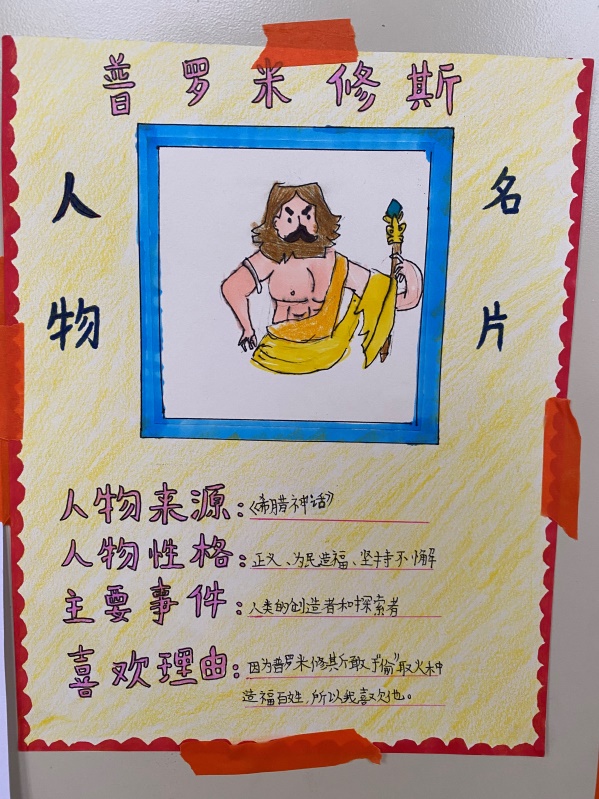 普罗米修斯
人物
名片
人物来源:《希腊神话》
人物性格:正义、为民造福、坚持不懈
主要事件:人类的创造者和探索者
喜欢理由:因为普罗米修斯敢于“偷”取火种
造福百姓,所以我喜欢他。